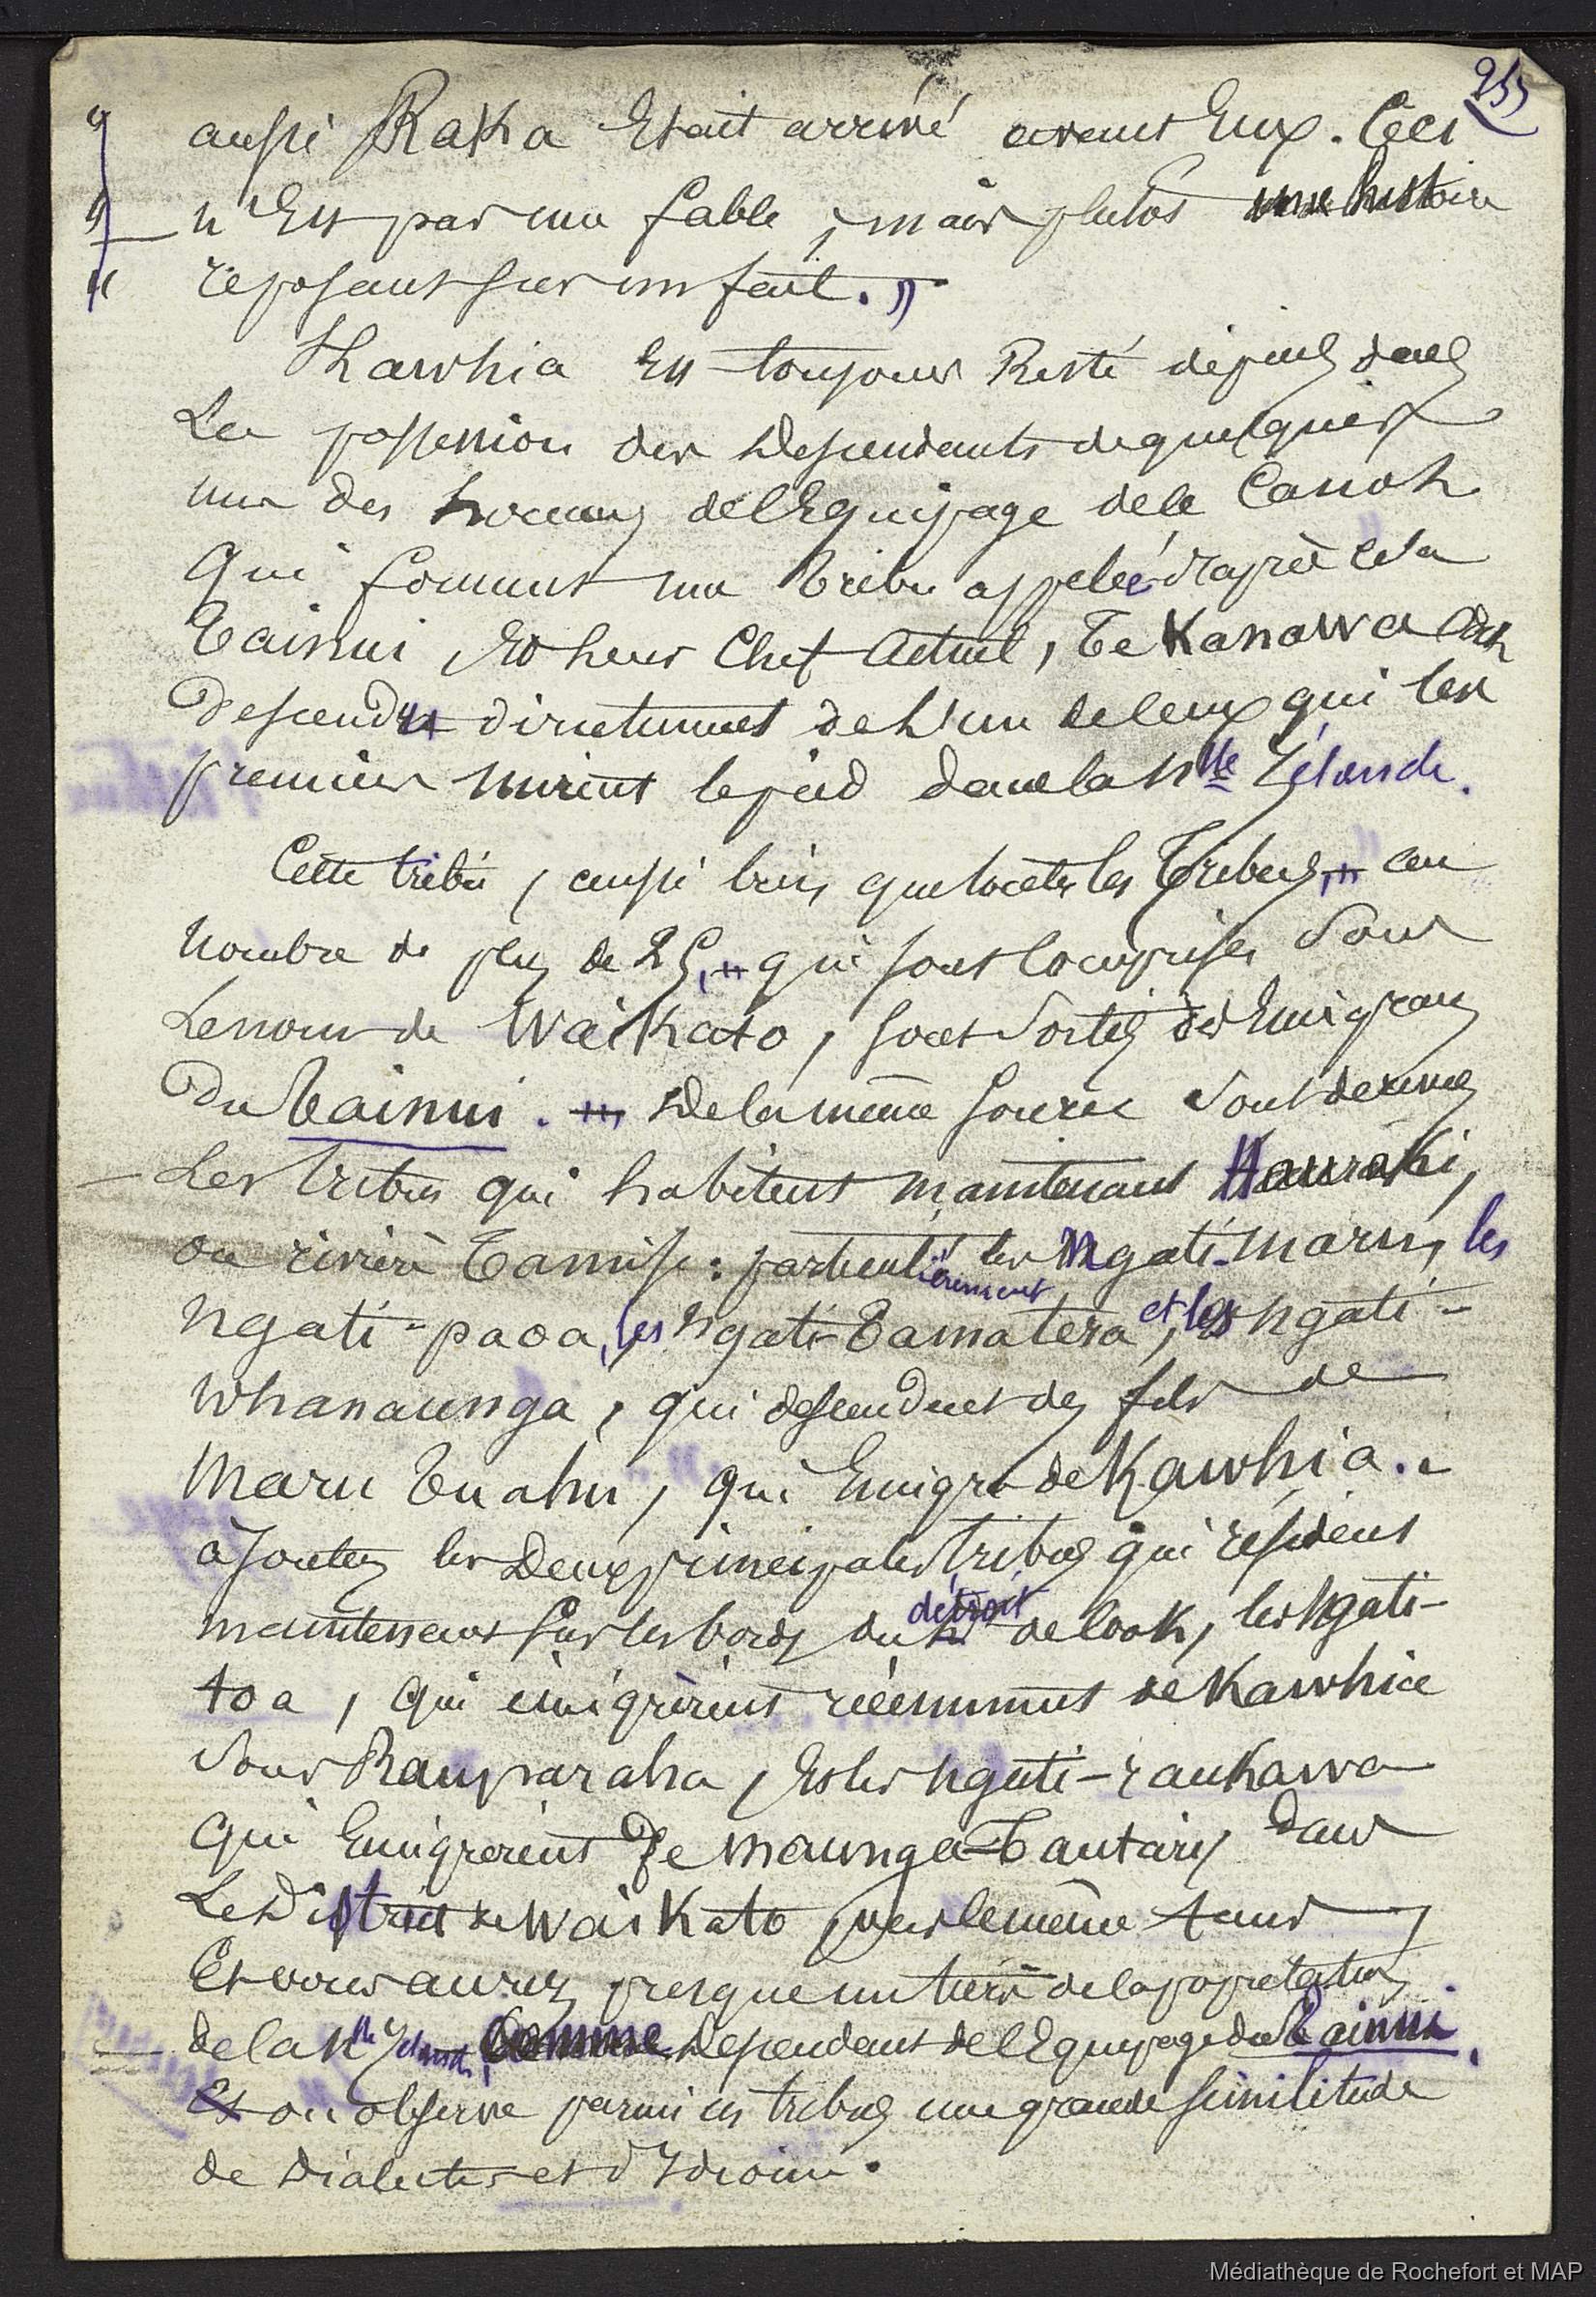 255
" aussi Raka était arrivé avant Eux. Ceci
" n'Est pas une fable, mais plutôt une histoire
" reposant sur un fait. »
Kawhia Est toujours Resté depuis dans
La possession des Descendants de quelques
uns des hommes de l'Equipage de ce Canot
Qui forment une Tribu appelée d'après cela
Tainui, Et leur Chef Actuel, Te Kanawa
descend directement de L'un de ceux qui les
premiers mirent le pied dans la Nlle Zélande.
Cette tribu, aussi bien que toutes les Tribus, au
Nombre de plus de 25, qui sont comprises Sous
Le nom de Waikato, sont Sorties des Emigrants
Du Tainui. De la même source sont dérivées
Les tribus qui habitent maintenant Hauraki,
ou rivière Tamise : particulièrement les Ngati-maru, les
Ngati-paoa, les Ngati-Tamatera, et les Ngati-
Whanaunga, qui descendent des fils de
Maru Tuahu, qui Emigra de Kawhia.
ajoutez les Deux principales tribus qui résident
maintenant sur les bords du détroit de Cook, les Ngati-
toa, qui émigrèrent récemment de Kawhia
Sous Rauparaha, Et les Ngati-raukawa
Qui Emigrèrent de Maunga-Tautari, dans
Le District de Waikato, vers le même temps
Et vous aurez presque un tiers de la population
de la Nlle Zélande, comme Dependant de l'Equipage du Tainui.
Et on observe parmi ces tribus une grande similitude
de Dialectes et d'Idiome.
Médiathèque de Rochefort et MAP